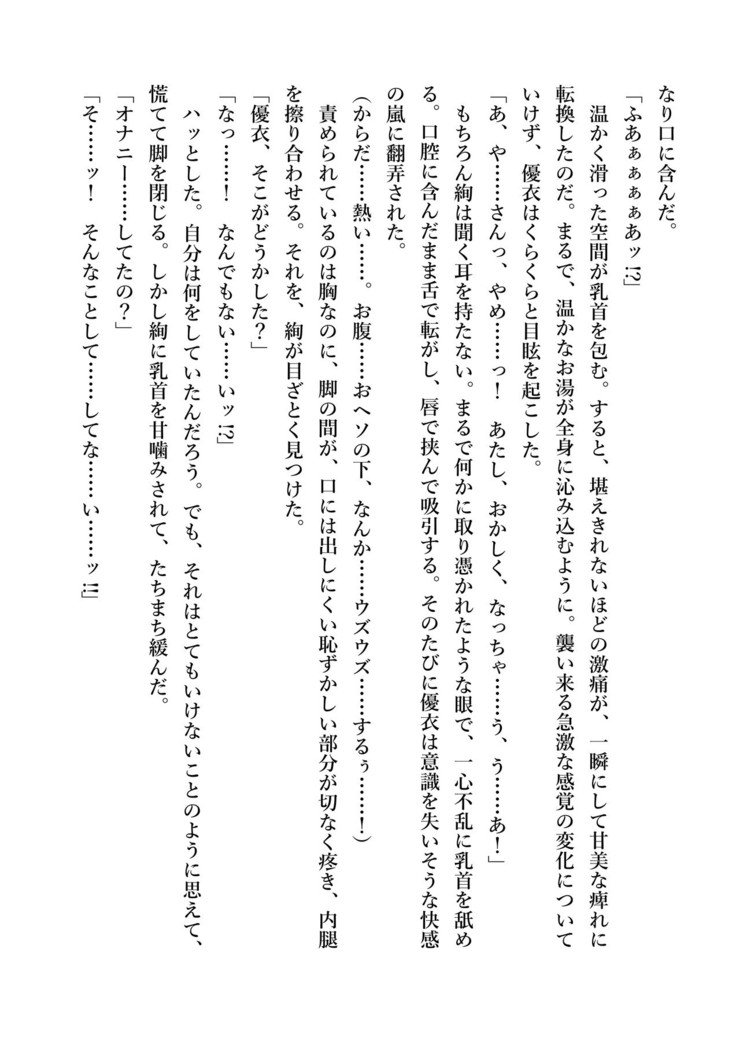 なり口に含んだ。
「ふあぁぁぁぁあッ!?」
　温かく滑った空間が乳首を包む。すると、堪えきれないほどの激痛が、一瞬にして甘美な痺れに
転換したのだ。まるで、温かなお湯が全身に沁み込むように。襲い来る急激な感覚の変化について
いけず、優衣はくらくらと目眩を起こした。
「あ、や……さんっ、やめ……っ！　あたし、おかしく、なっちゃ……う、う……あ！」
　もちろん絢は聞く耳を持たない。まるで何かに取り憑かれたような眼で、一心不乱に乳首を舐め
る。口腔に含んだまま舌で転がし、唇で挟んで吸引する。そのたびに優衣は意識を失いそうな快感
の嵐に翻弄された。
（からだ……熱い……。お腹……おヘソの下、なんか……ウズウズ……するぅ……！）
　責められているのは胸なのに、脚の間が、口には出しにくい恥ずかしい部分が切なく疼き、内腿
を擦り合わせる。それを、絢が目ざとく見つけた。
「優衣、そこがどうかした？」
「なっ……！　なんでもない……いッ!?」
　ハッとした。自分は何をしていたんだろう。でも、それはとてもいけないことのように思えて、
慌てて脚を閉じる。しかし絢に乳首を甘噛みされて、たちまち緩んだ。
「オナニー……してたの？」
「そ……ッ！　そんなことして……してな……い……ッ!!」